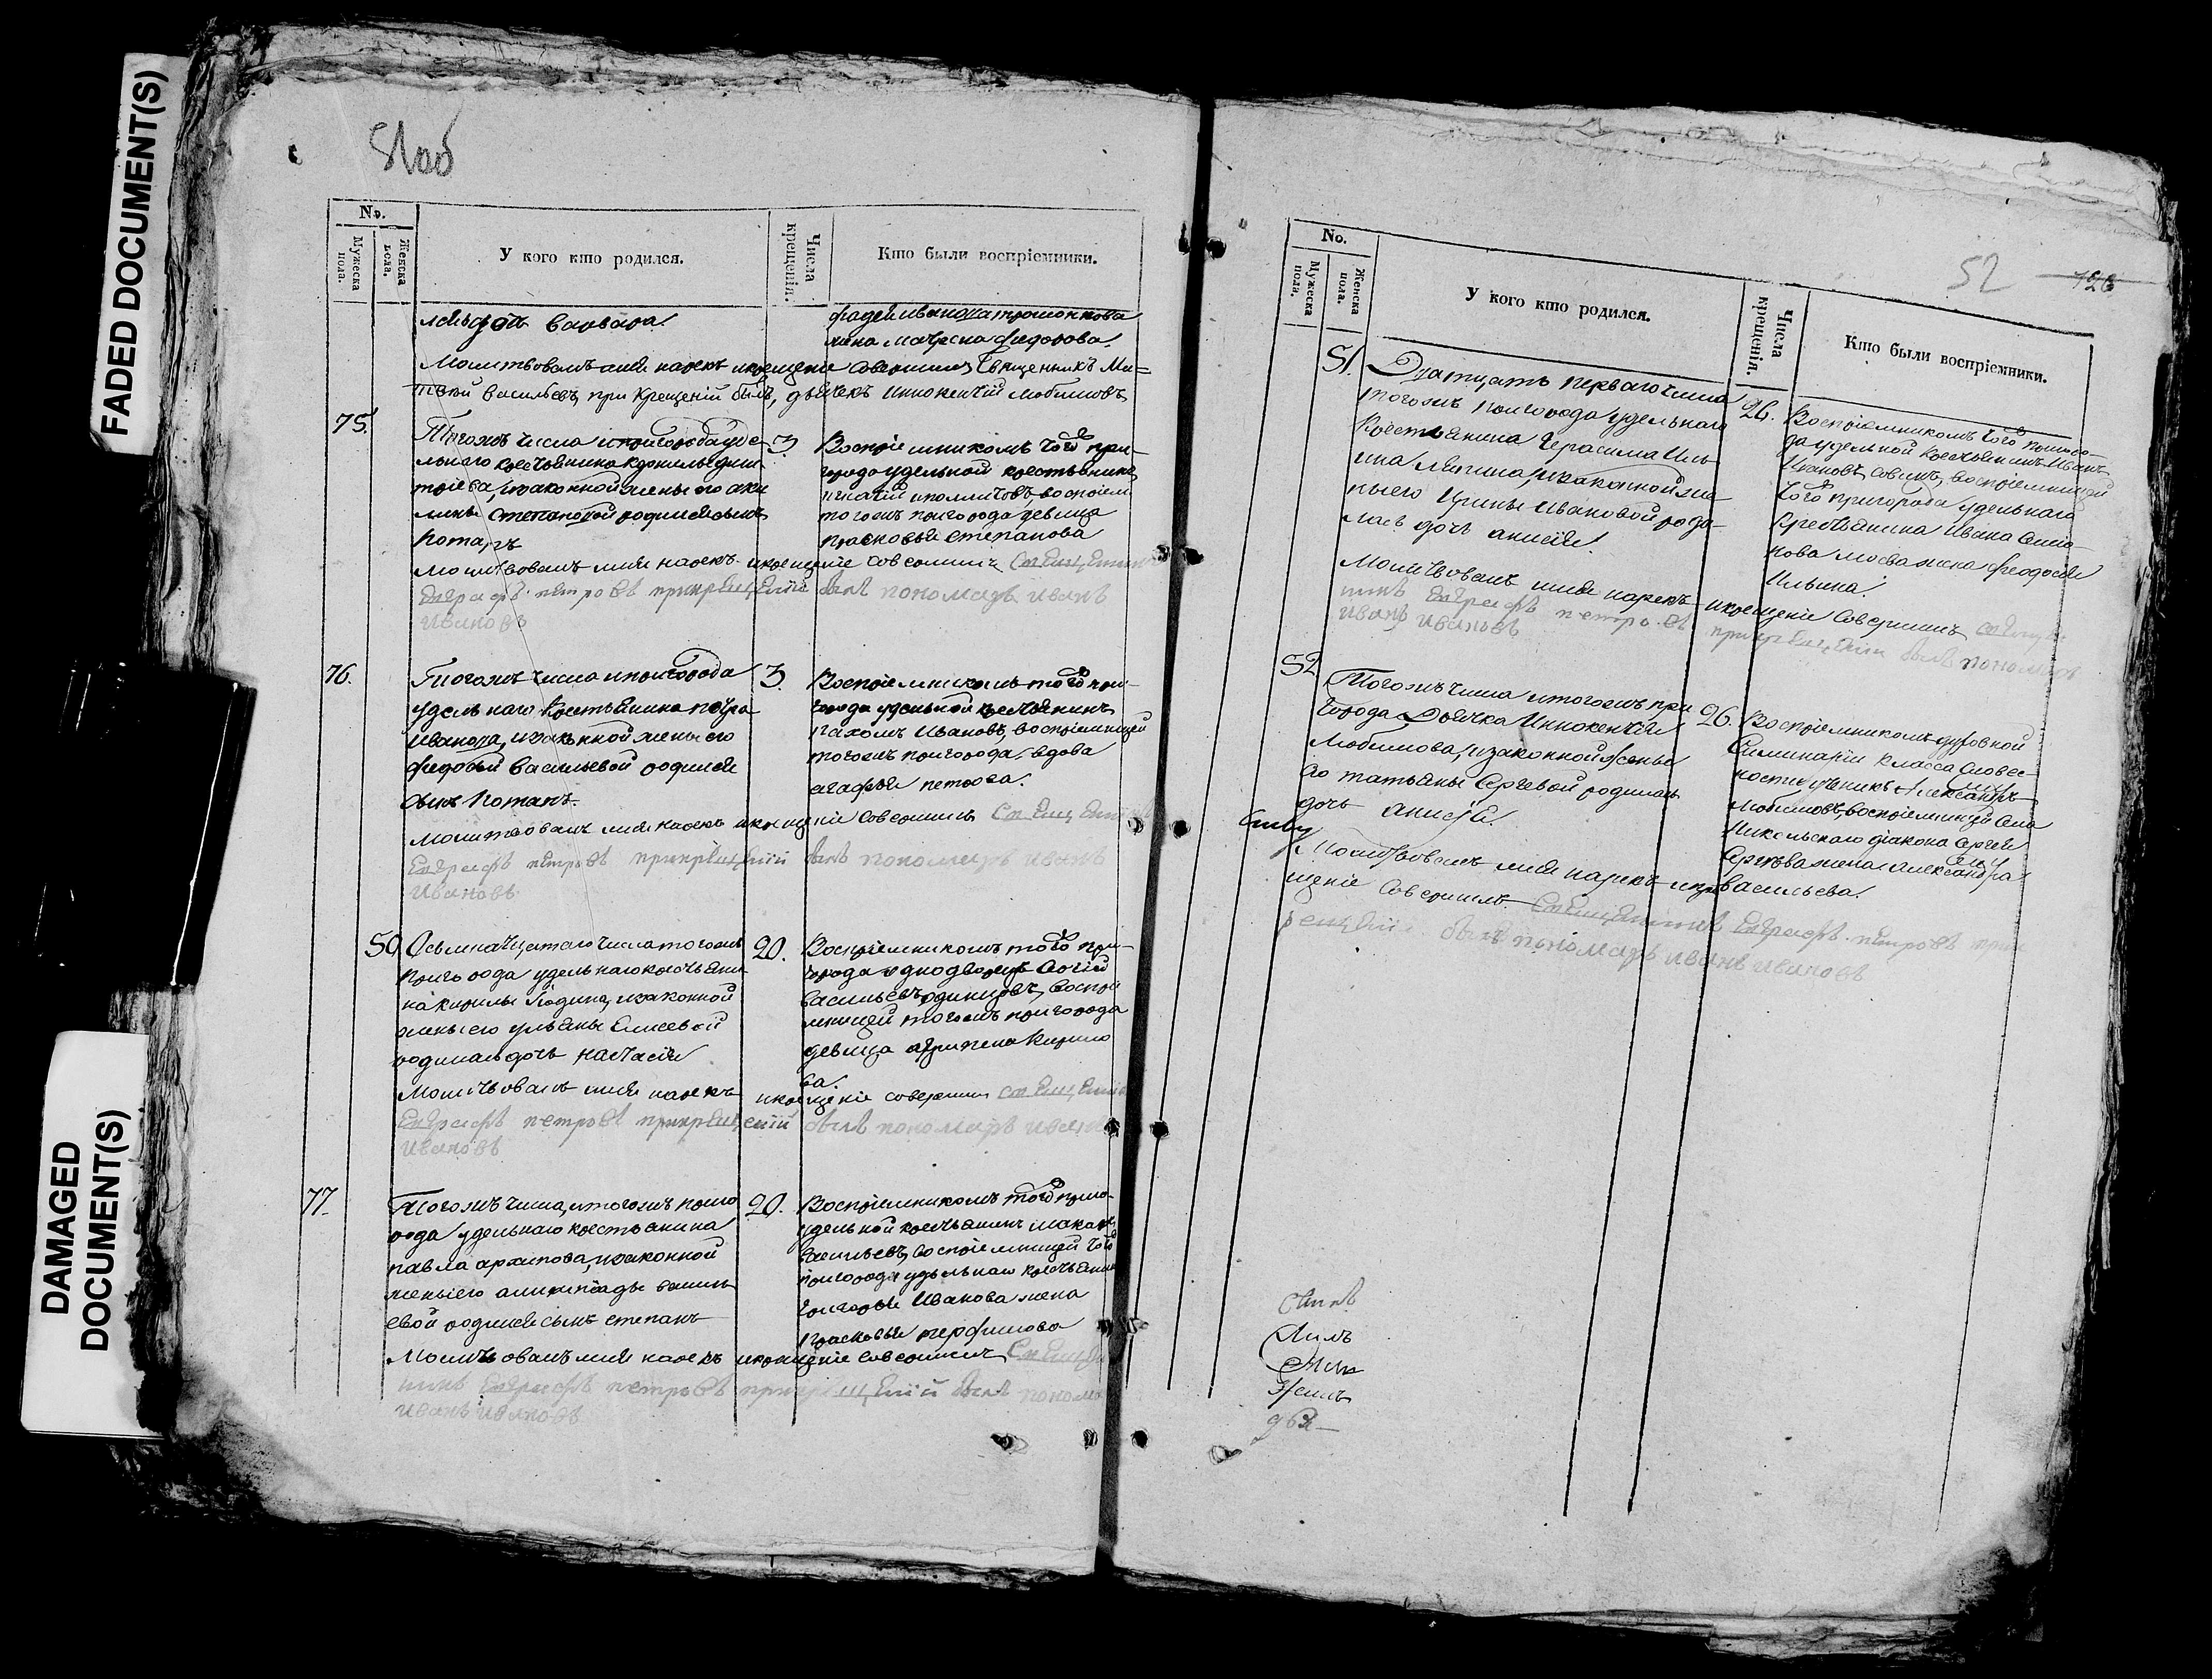 FADED DOCUMENT(S)
DAMAGED
DOCUMENT(S)
51об
No.
Мужеска пола.
Женска пола.
У кого кто родился.
Числа крещенія.
Кто были воспріемники.
дочь Варвара.
жена Матрена Федорова.
Молитвовалъ имя нарекъ и крещеніе совершилъ Священникъ Ма-
твей Васильевъ, при крещеніи былъ, дьячекъ Иннокентій Любимовъ
75.
Тогожъ числа и пригорода уде-
льнаго крестьянина
3
, и законной жены его аки
лины Степановой родился сынъ
Потапъ
Воспріемникомъ того при-
города удельной крестьянинъ
тогожъ пригорода девица
Прасковья Степанова
Молитвовалъ имя нарекъ и крещеніе совершилъ Священникъ
Евграфъ Петровъ при крещеніи былъ пономарь Иванъ
Ивановъ
76.
Тогожъ числа и пригорода
удельнаго крестьянина Петра
Иванова, и законной жены его
Федосьи Васильевой родился
сынъ Потапъ.
3.
Воспріемникомъ того при-
города удельной крестьянинъ
Пахомъ Ивановъ, воспріемницей
тогожъ пригорода вдова
агафья петрова.
Молитвовалъ имя нарекъ и крещеніе совершилъ Священникъ
Евграфъ Петровъ при крещеніи былъ пономарь Иванъ
Ивановъ
50.
Осьмнатцатаго числа тогожъ
пригорода удельнаго крестьяни
на Кирилы Юдина, и законной
жены его ульяны Елисеевой
родилась дочь настасія
20.
Воспріемникомъ того при-
города однодворецъ
Васильевъ Одинцовъ, воспріе
мницей тогожъ пригорода
девица агрипена Кирило
ва.
Молитвовалъ имя нарекъ и крещеніе совершилъ Священникъ
Евграфъ Петровъ при крещеніи былъ пономарь Иванъ
Ивановъ
77.
Тогожъ числа, и тогожъ приго
рода удельнаго крестьянина
павла архипова, и законной
жены его олимпіады Василь
евой родился сынъ степанъ
20.
Воспріемникомъ того приго-
удельной крестьянинъ макаръ
Васильевъ, воспріемницей того
пригорода удельнаго крестьянина
Григорья Иванова жена
Прасковья перфилова
Молитвовалъ имя нарекъ и крещеніе совершилъ Священ
никъ Евграфъ Петровъ при крещеніи былъ пономарь
Иванъ Ивановъ
52
126
No.
Мужеска пола.
Женска пола.
У кого кто родился.
Числа крещенія.
Кто были воспріемники.
51.
Дватцать перваго числа
тогожъ пригорода удельнаго
Крестьянина Герасима Иль
ина Ляпина, и законной же-
ны его Ирины Ивановой роди-
лась дочь анисія.
26.
Воспріемникомъ того приго-
да удельной крестьянинъ Иванъ
Ивановъ, воспріемницей
того пригорода удельнаго
Крестьянина Ивана
жена Феодосья
Ильина.
Молитвовалъ имя нарекъ и крещеніе совершилъ Священ
никъ Евграфъ Петровъ при крещеніи былъ пономарь
Иванъ Ивановъ
52
Тогожъ числа и тогожъ при
города Дьячка Иннокентія
Любимова, и законной жены
его татьяны Сергеевой родилась
дочь анисія.
26.
Воспріемникомъ духовной
Симинаріи класса словес-
ности ученикъ Александръ
Любимовъ, воспріемницей села
Никольскаго діакона Сергея
Сергеева жена александра
Васильева.
Молитвовалъ имя нарекъ и кре
щеніе совершилъ Священникъ Евграфъ Петровъ при к
рещеніи былъ пономарь Иванъ Ивановъ